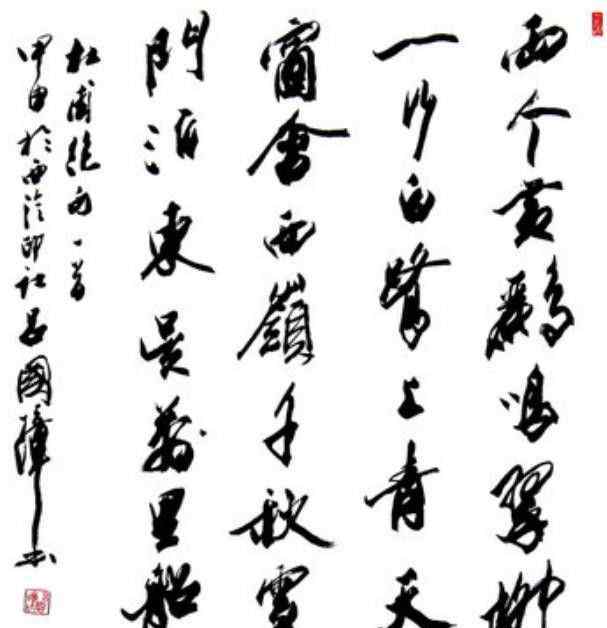 両个黄鸝鳴翠柳
一行白鷺上青天
窗含西嶺千秋雪
門泊東吴萬里船
杜甫絶句一首
甲申於西泠印社吕國璋书